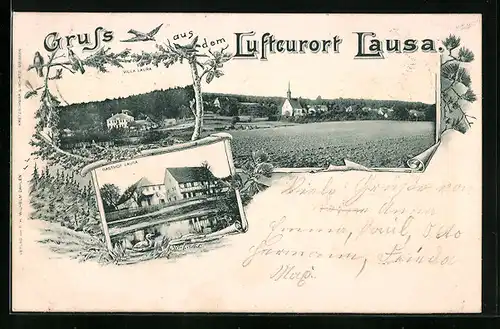 Gruß aus dem Luftcurort Lausa.
VILLA LAURA
GASTHOF LAUSA
Viele Grüße von
Anna
Emma, Paul, Otto
Hermann, Frieda
Max